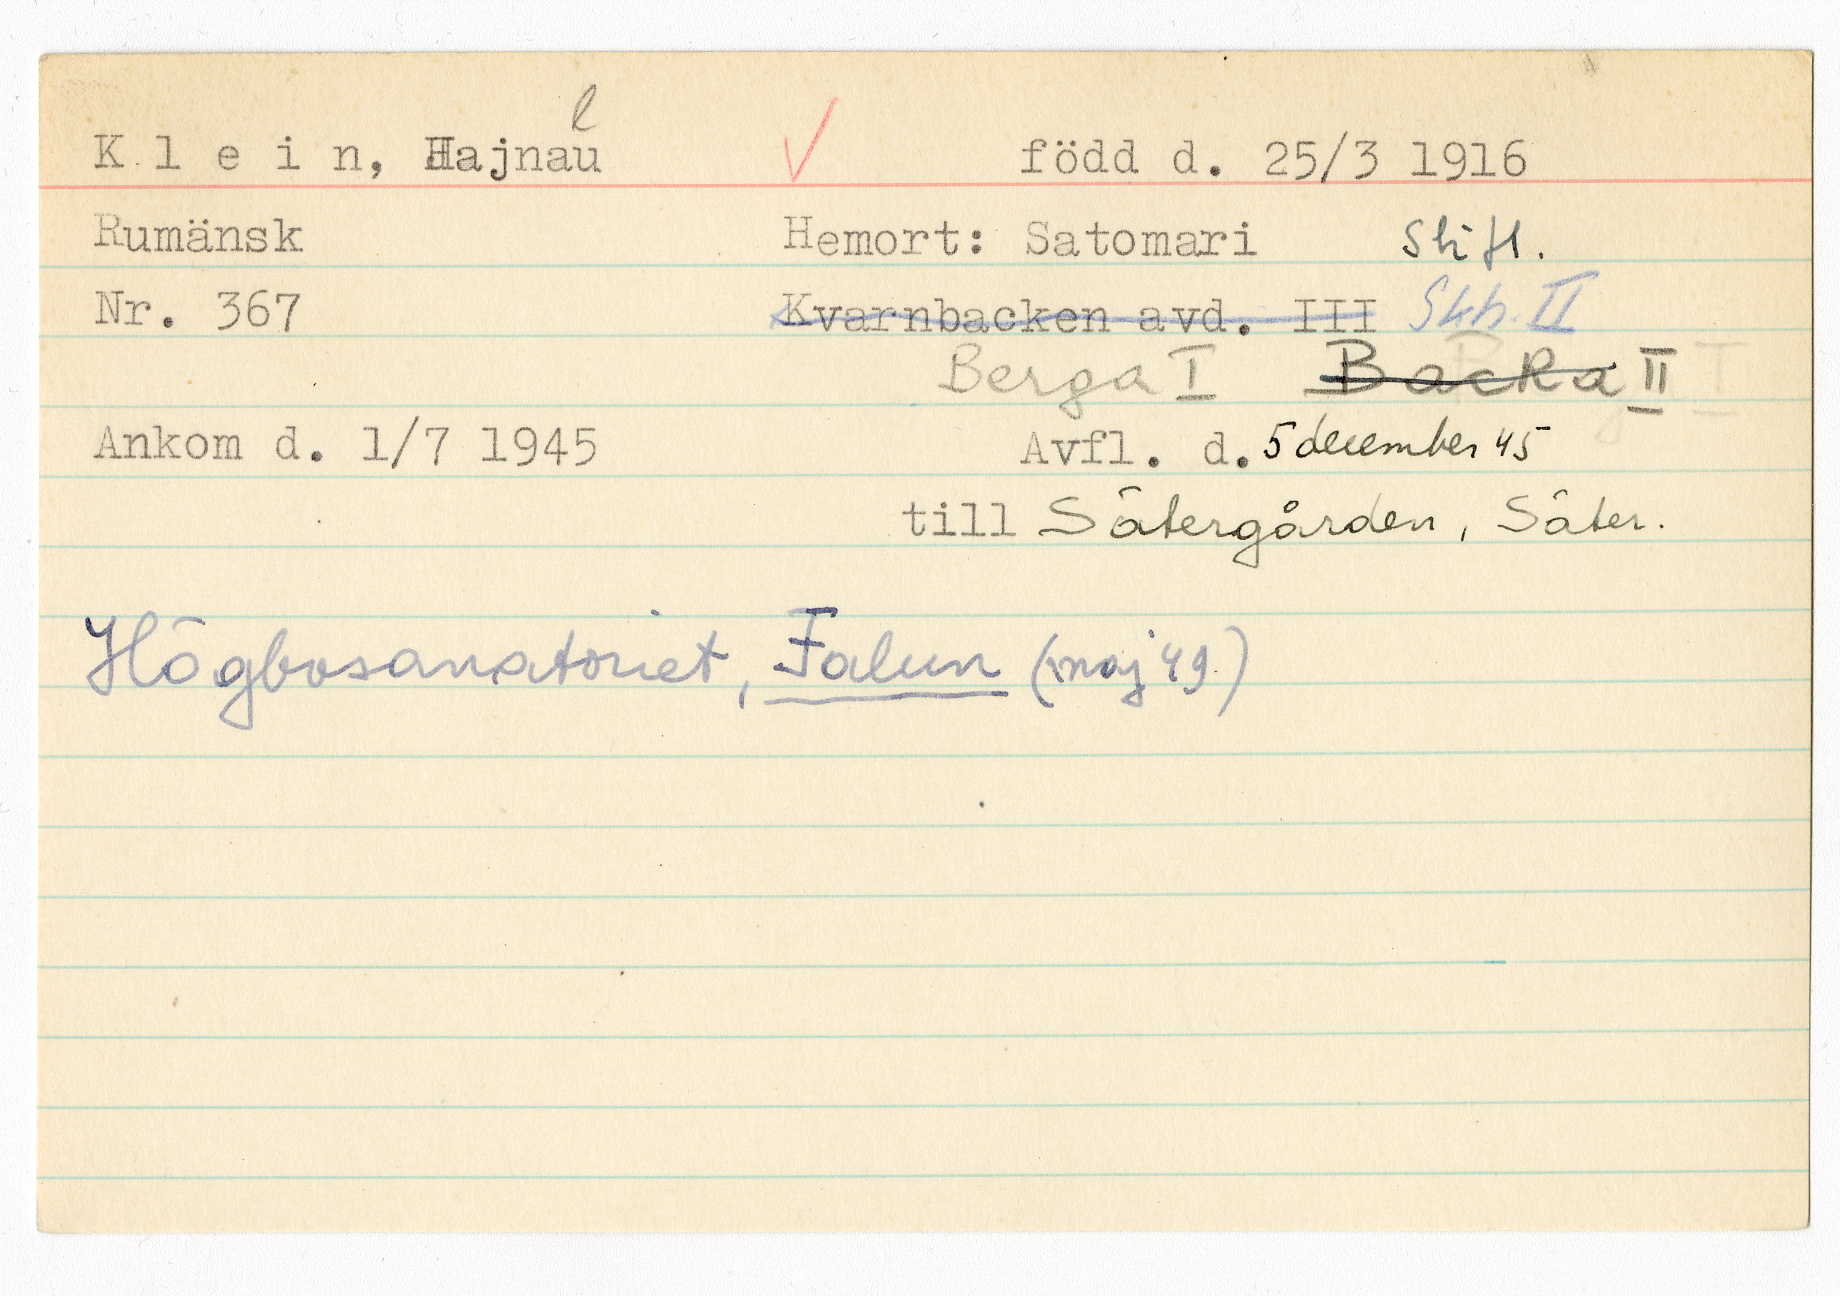 l
K l e i n, Hajnau ✓ född d. 25/3 1916
Rumänsk Hemort: Satomari
Nr. 367 Kvarnbacken avd. III II
Berga I Backa II I
Ankom d. 1/7 1945 Avfl. d. 5 december 45
till Sätergården, Säter.
Högbosanatoriet, Falun (maj 49)